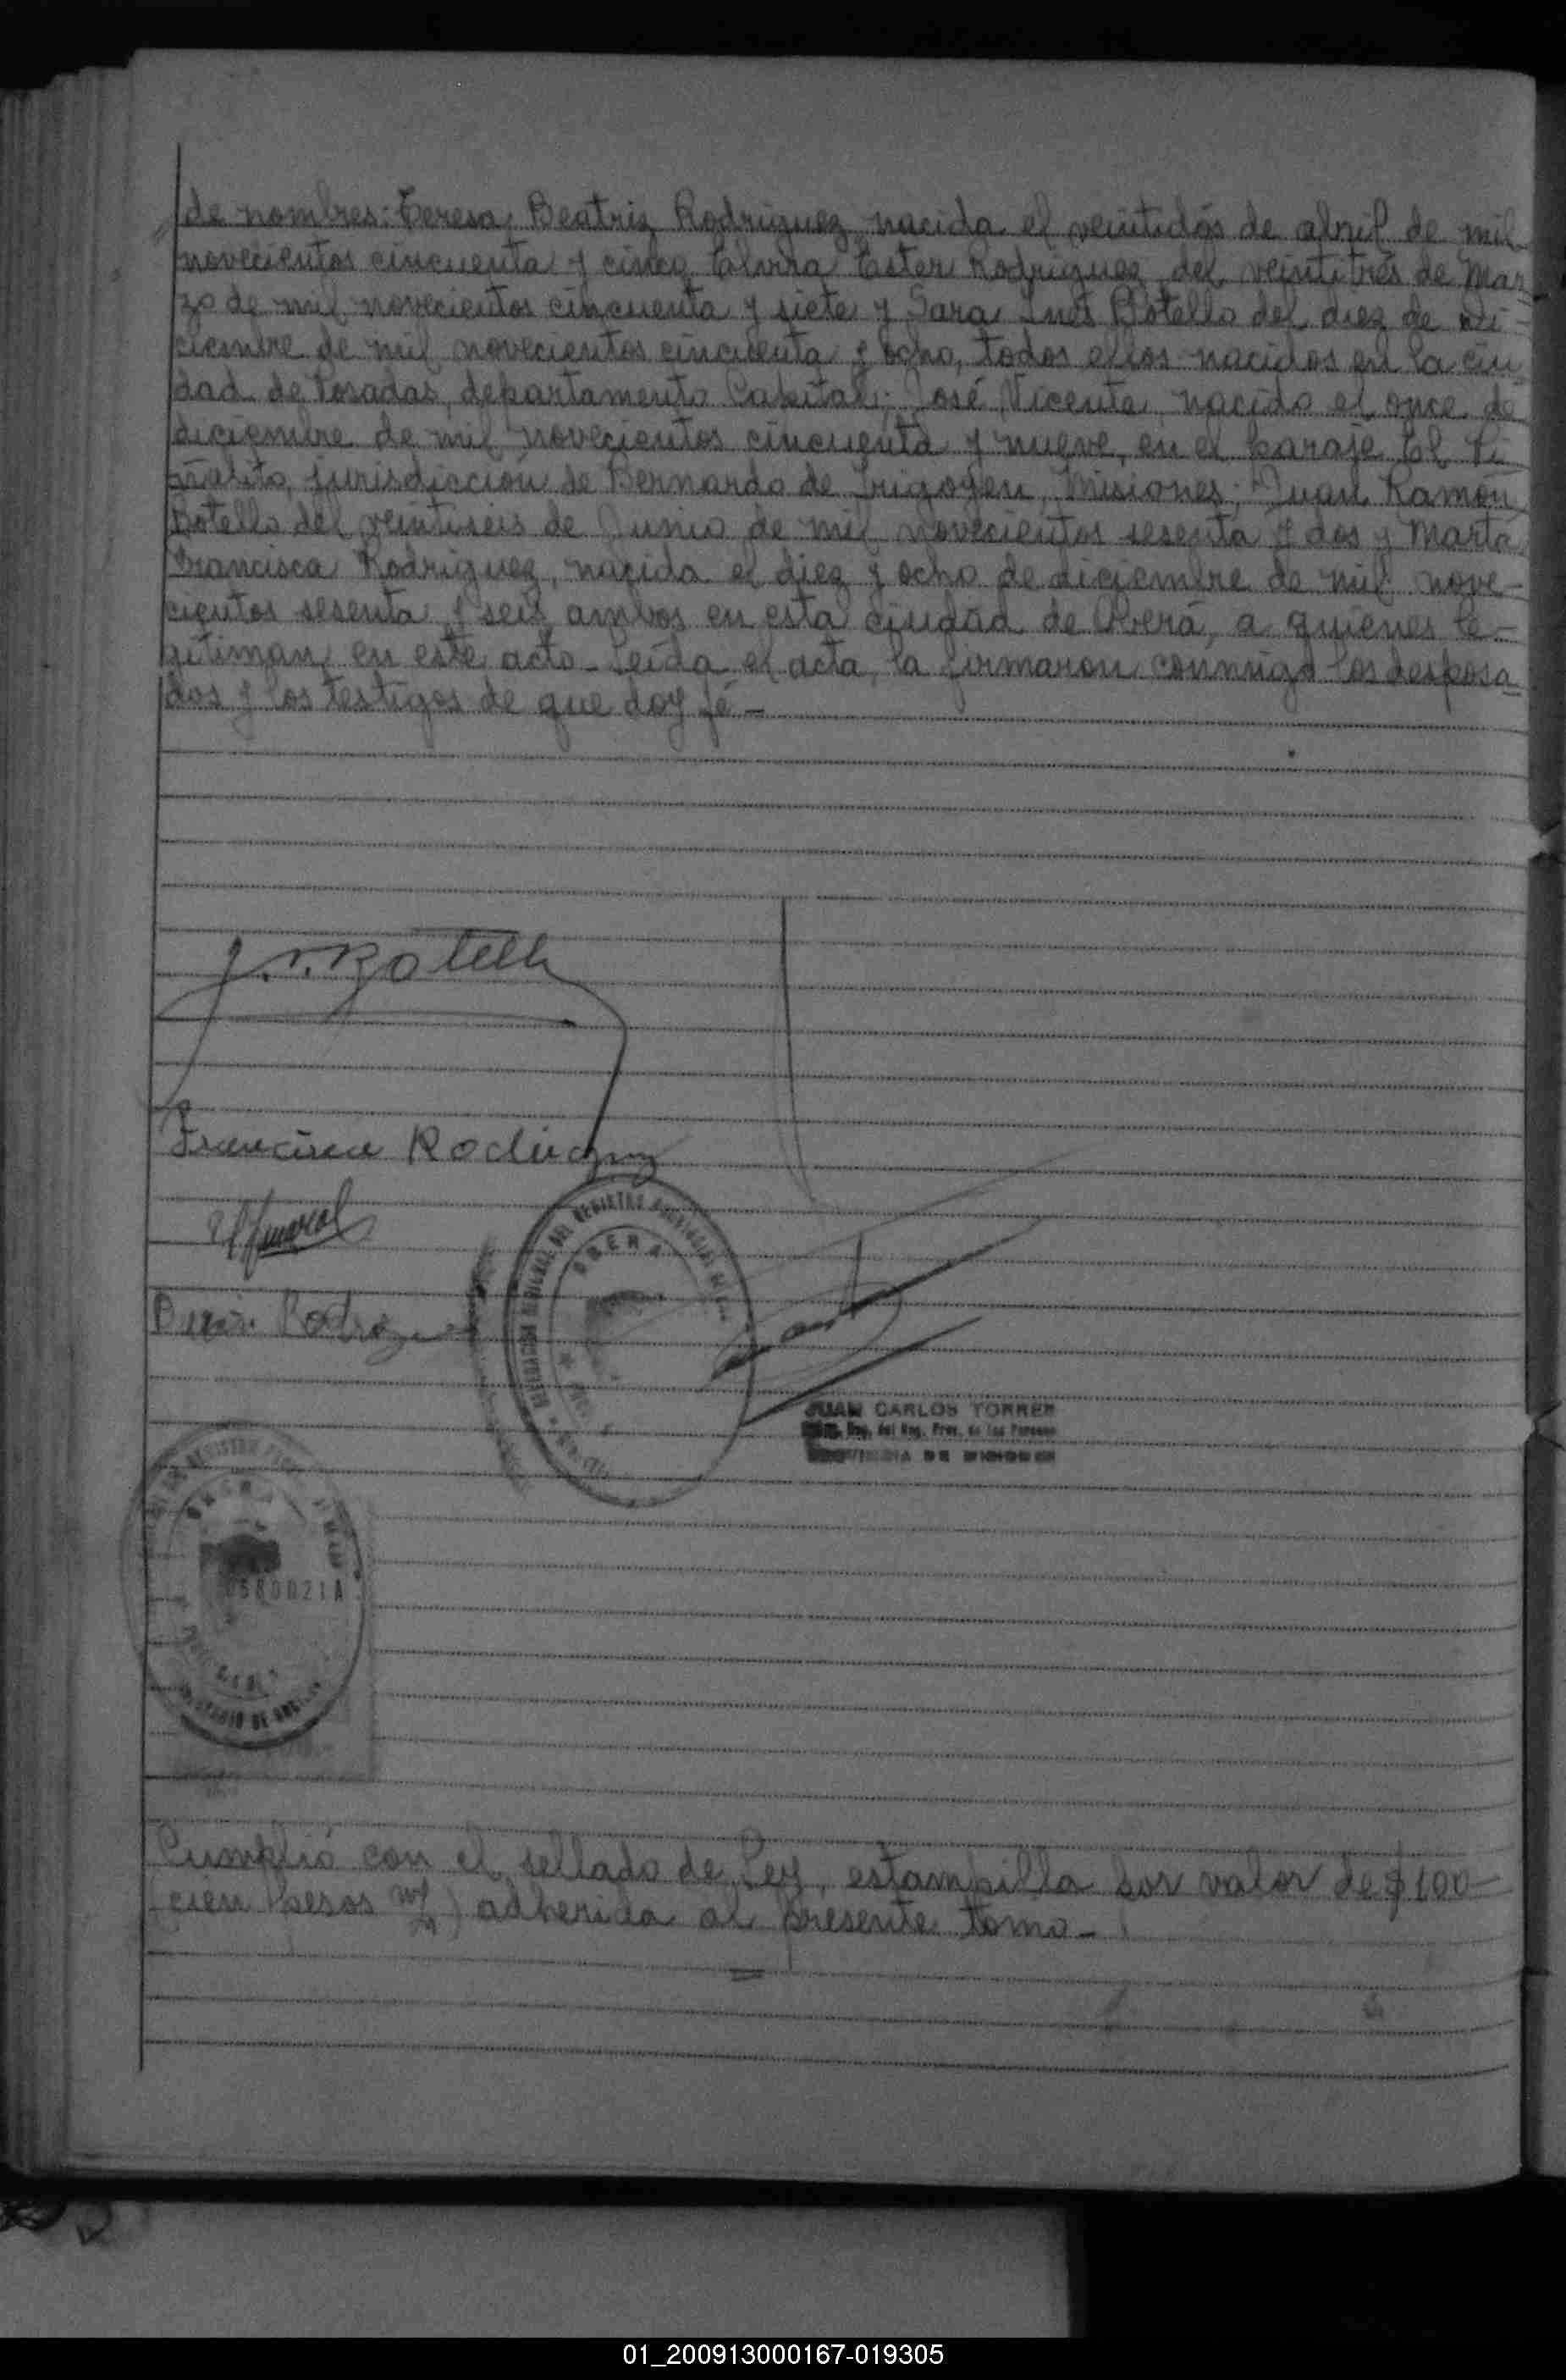 de nombres: Teresa Beatriz Rodriguez nacida el veintidós de abril de mil
novecientos cincuenta y cinco, Elvira Ester Rodriguez del veintitrés de Mar-
zo de mil novecientos cincuenta y siete y Sara Inés Botello del diez de di-
ciembre de mil novecientos cincuenta y ocho, todos ellos nacidos en la ciu-
dad de Posadas, departamento Capital; José Vicente, nacido el once de
diciembre de mil novecientos cincuenta y nueve, en el paraje El Pi-
ñalito, jurisdicción de Bernardo de Irigoyen, Misiones; Juan Ramón
Botello del veintiseis de Junio de mil novecientos sesenta y dos y Marta
Francisca Rodriguez, nacida el diez y ocho de diciembre de mil nove-
cientos sesenta y seis ambos en esta ciudad de Oberá, a quienes le-
gitiman en este acto - Leída el acta, la firmaron conmigo los desposa-
dos y los testigos de que doy fé -
J. V. Botello
Francisca Rodriguez
OBERA
JUAN CARLOS TORRES
del Reg. Prov. de las Personas
PROVINCIA DE MISIONES
0580021A
Cumplió con el sellado de Ley, estampilla por valor de $ 100-
(cien pesos m/n) adherida al presente tomo -
01_200913000167-019305